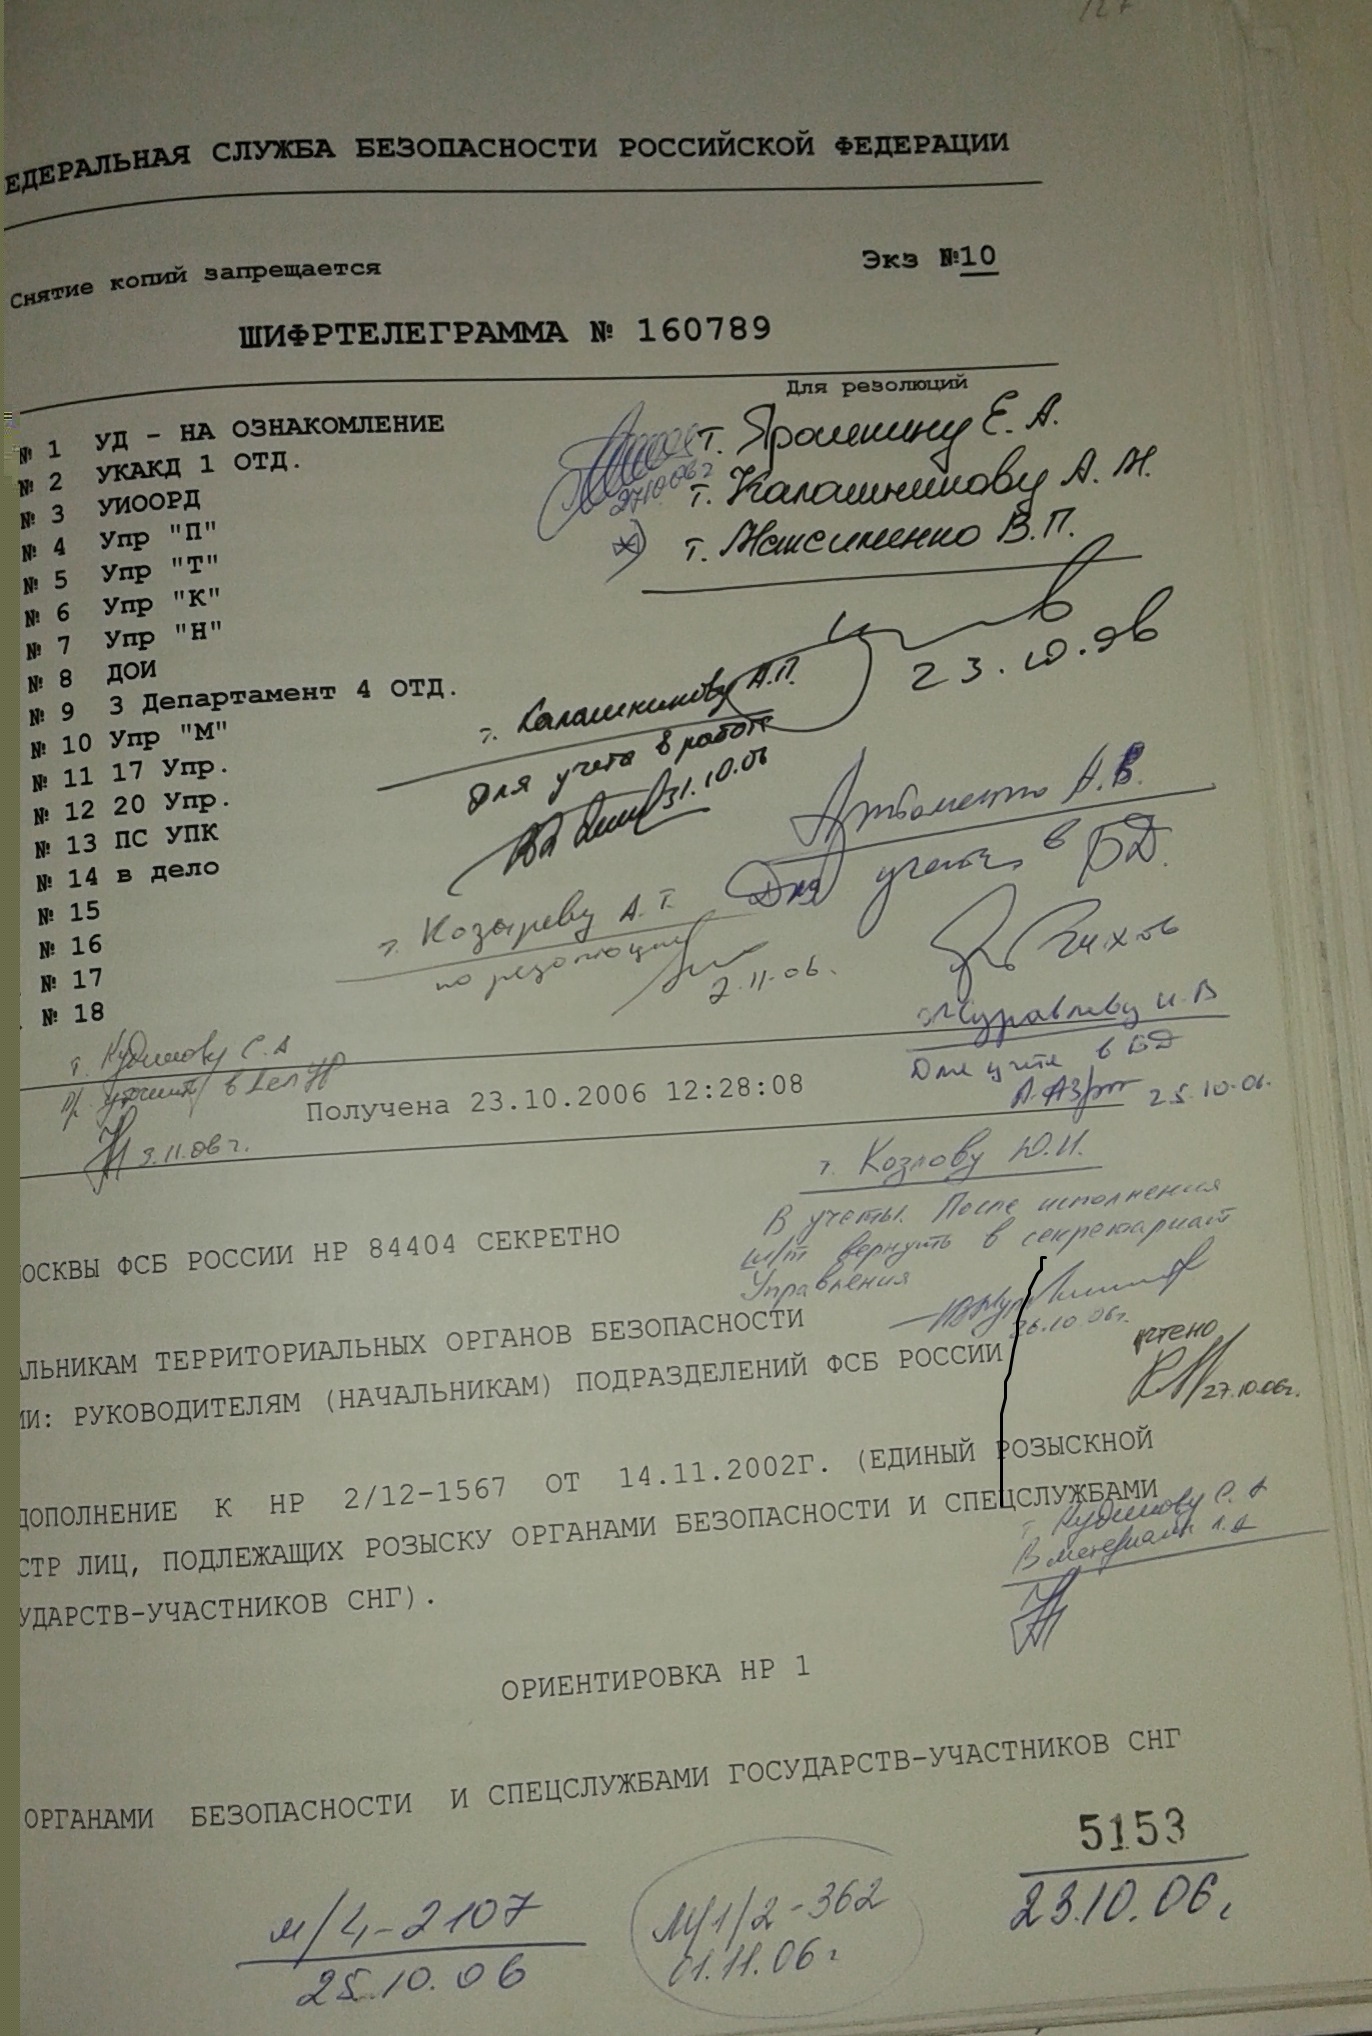 ЕДЕРАЛЬНАЯ СЛУЖБА БЕЗОПАСНОСТИ РОССИЙСКОЙ ФЕДЕРАЦИИ
Снятие копий запрещается
Экз №10
ШИФРТЕЛЕГРАММА № 160789
Для резолюций
№ 1 УД - НА ОЗНАКОМЛЕНИЕ
№ 2 УКАКД 1 ОТД.
№ 3 УИООРД
№ 4 Упр "П"
№ 5 Упр "Т"
№ 6 Упр "К"
№ 7 Упр "Н"
№ 8 ДОИ
№ 9 3 Департамент 4 ОТД.
№ 10 Упр "М"
№ 11 17 Упр.
№ 12 20 Упр.
№ 13 ПС УПК
№ 14 в дело
№ 15
№ 16
№ 17
№ 18
т. Ярошкину Е. А.
т. Калашникову А.
т. Максименко В.П.
23.10.06
т. Калашникову А.П.
Для учета в работе
31.10.06
А.В.
Для учета в БД.
т. Козыреву А. Т.
по резолюции
2.11.06.
Журавлеву И. В
Для учета в БД
25.10.06.
т. Кудинову С. А
в дел
3.11.06 г.
Получена 23.10.2006 12:28:08
т. Козлову Ю.И.
В учеты. После исполнения
ш/т вернуть в секретариат
Управления
26.10.06г.
ОСКВЫ ФСБ РОССИИ НР 84404 СЕКРЕТНО
АЛЬНИКАМ ТЕРРИТОРИАЛЬНЫХ ОРГАНОВ БЕЗОПАСНОСТИ
ИИ: РУКОВОДИТЕЛЯМ (НАЧАЛЬНИКАМ) ПОДРАЗДЕЛЕНИЙ ФСБ РОССИИ
учтено
27.10.06г.
ДОПОЛНЕНИЕ К НР 2/12-1567 ОТ 14.11.2002Г. (ЕДИНЫЙ РОЗЫСКНОЙ
СТР ЛИЦ, ПОДЛЕЖАЩИХ РОЗЫСКУ ОРГАНАМИ БЕЗОПАСНОСТИ И СПЕЦСЛУЖБАМИ
УДАРСТВ-УЧАСТНИКОВ СНГ).
т. Кудинову С. А
В материалы
ОРИЕНТИРОВКА НР 1
ОРГАНАМИ БЕЗОПАСНОСТИ И СПЕЦСЛУЖБАМИ ГОСУДАРСТВ-УЧАСТНИКОВ СНГ
5153
23.10.06г
м/4-2107
25.10.06
М/1/2-362
01.11.06г